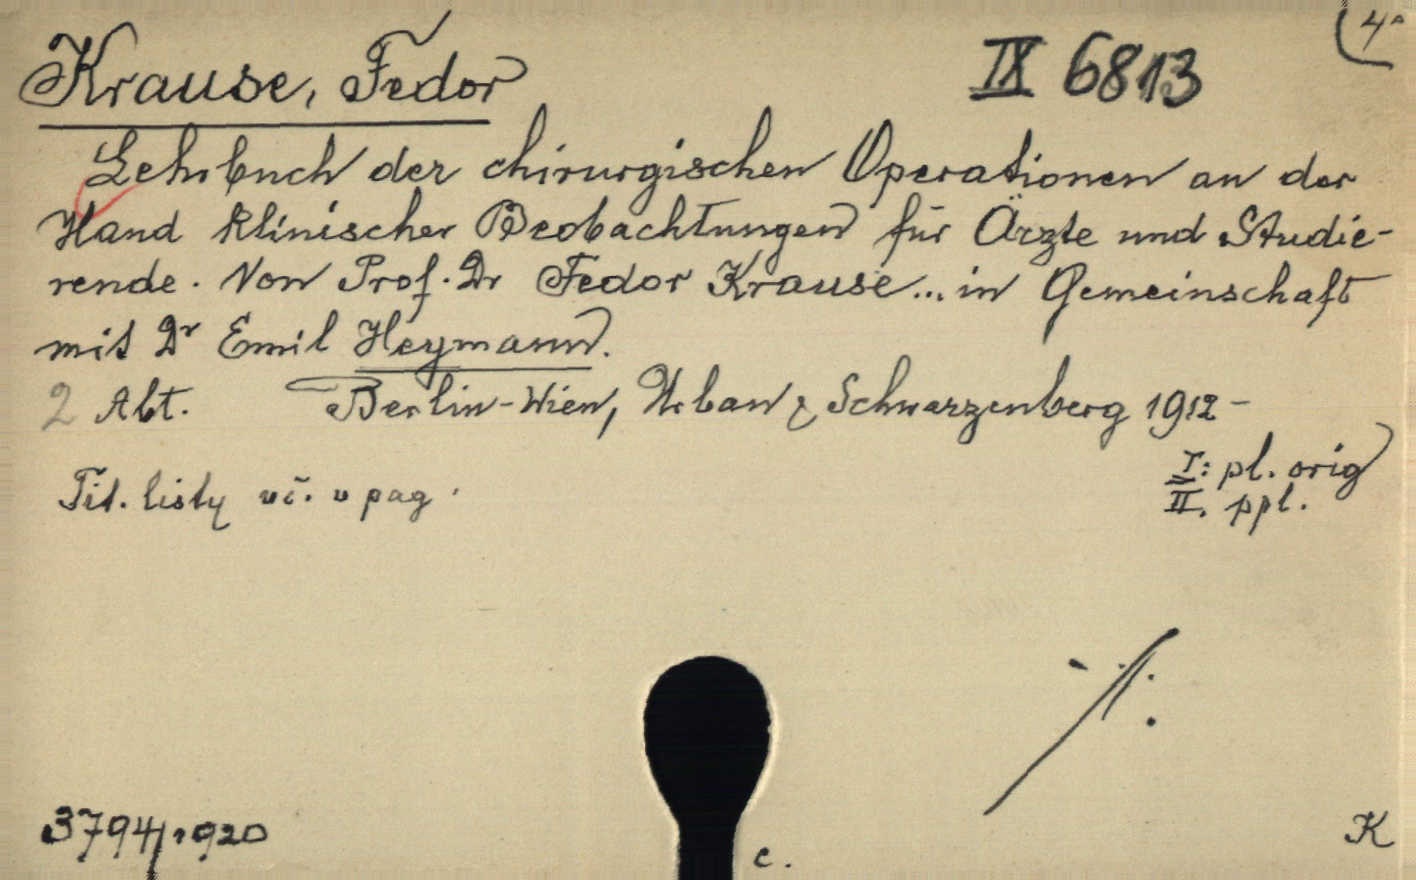 4°
Krause, Fedor
IX 6813
Lehrbuch der chirurgischen Operationen an der
Hand klinischer Beobachtungen für Ärzte und Studie-
rende. Von Prof. Dr Fedor Krause... in Gemeinschaft
mit Dr Emil Heymann.
2 Abt. Berlin-Wien, Urban & Schwarzenberg 1912-
I: pl. orig
Tit. listy vč. v pag.
II. ppl.
3794/1920
c.
K